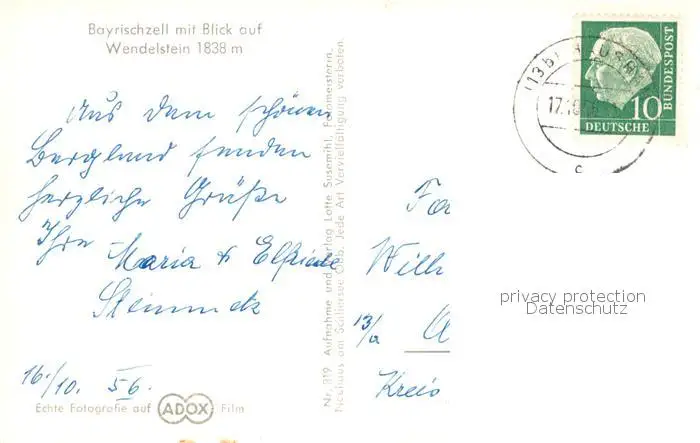 Bayrischzell mit Blick auf
Wendelstein 1838 m
Aus dem schönen
Bergland senden
herzliche Grüße
Ihre Maria & Elfriede
Steinmetz
16./10. 56.
Echte Fotografie auf ADOX Film
Nr. 819 Aufnahme und Verlag Lotte Susemihl, Fotomeisterin,
Neuhaus am Schliersee Obb. Jede Art Vervielfältigung verboten.
10
DEUTSCHE
BUNDESPOST
(13b)
17.10.
c
Fa
Wilh
13/a
Kreis
privacy protection
Datenschutz